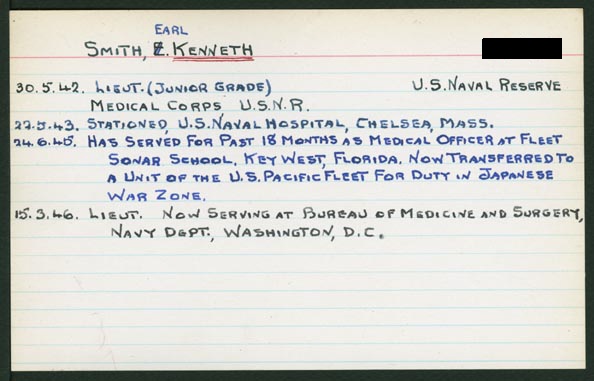 EARL
SMITH, E. KENNETH
30.5.42. LIEUT. (JUNIOR GRADE) U.S. NAVAL RESERVE
MEDICAL CORPS U.S.N.R.
27.5.43. STATIONED, U.S. NAVAL HOSPITAL, CHELSEA, MASS.
24.6.45. HAS SERVED FOR PAST 18 MONTHS AS MEDICAL OFFICER AT FLEET
SONAR SCHOOL, KEY WEST, FLORIDA. NOW TRANSFERRED TO
A UNIT OF THE U.S. PACIFIC FLEET FOR DUTY IN JAPANESE
WAR ZONE.
15.3.46. LIEUT. NOW SERVING AT BUREAU OF MEDICINE AND SURGERY,
NAVY DEPT., WASHINGTON, D.C.